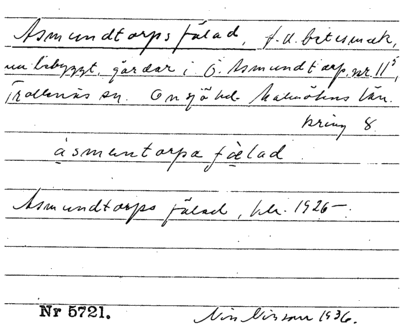 Asmundtorps fälad, f.d. betesmark,
nu bebyggt, gårdar i Ö. Asmundtorp nr. 11⁵,
Trollenäs sn. Onsjö hd. Malmöhus län.
kring 8.
ásmentorpa fœlad
Asmundtorps fälad, 1926–.
Nr 5721.
1936.